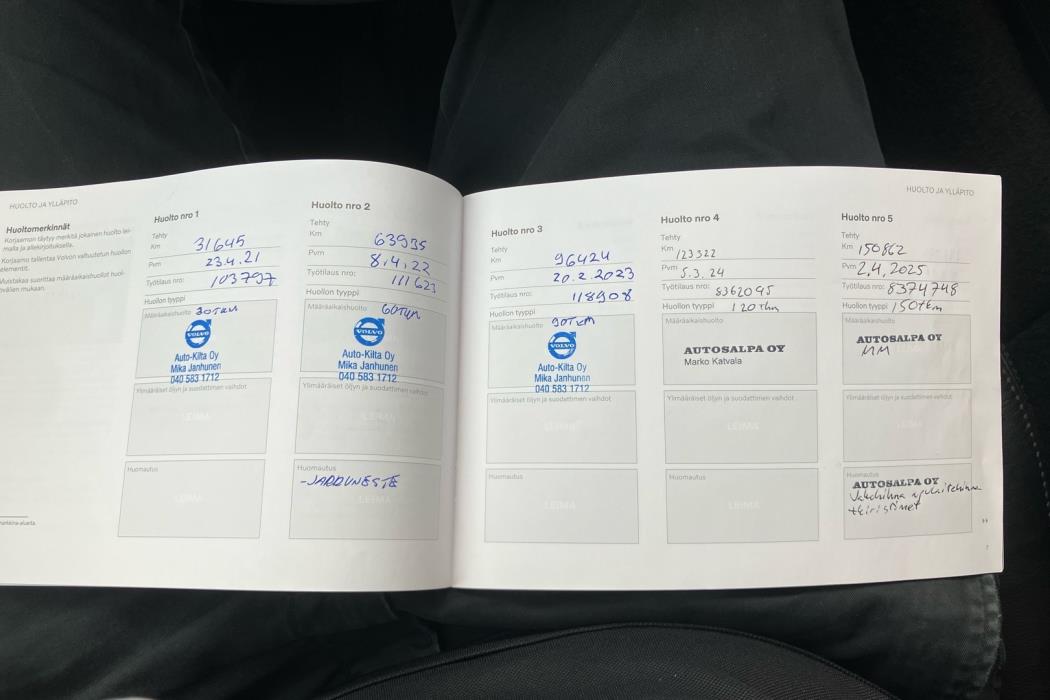 HUOLTO JA YLLÄPITO
Huoltomerkinnät
Korjaamon täytyy merkitä jokainen huolto lei-
malla ja allekirjoituksella.
Korjaamo tallentaa Volvon valtuutetun huollon
elementit.
Muistakaa suorittaa määräaikaishuollot huol-
tovälien mukaan.
Huolto nro 1
Tehty
Km 31645
Pvm 23.4.21
Työtilaus nro: 103797
Huollon tyyppi
Määräaikaishuolto 30TKM
VOLVO
Auto-Kilta Oy
Mika Janhunen
040 583 1712
Ylimääräiset öljyn ja suodattimen vaihdot
LEIMA
Huomautus
LEIMA
Huolto nro 2
Tehty
Km 63935
Pvm 8.4.22
Työtilaus nro: 111623
Huollon tyyppi
Määräaikaishuolto 60TKM
VOLVO
Auto-Kilta Oy
Mika Janhunen
040 583 1712
Ylimääräiset öljyn ja suodattimen vaihdot
LEIMA
Huomautus
-JARRUNESTE
LEIMA
Huolto nro 3
Tehty
Km 96424
Pvm 20.2.2023
Työtilaus nro: 118908
Huollon tyyppi
Määräaikaishuolto 90TKM
VOLVO
Auto-Kilta Oy
Mika Janhunen
040 583 1712
Ylimääräiset öljyn ja suodattimen vaihdot
LEIMA
Huomautus
LEIMA
Huolto nro 4
Tehty
Km 123322
Pvm 5.3.24
Työtilaus nro: 8362095
Huollon tyyppi 120 tkm
Määräaikaishuolto
AUTOSALPA OY
Marko Katvala
Ylimääräiset öljyn ja suodattimen vaihdot
LEIMA
Huomautus
LEIMA
HUOLTO JA YLLÄPITO
Huolto nro 5
Tehty
Km 150862
Pvm 2.4.2025
Työtilaus nro: 8374748
Huollon tyyppi 150tkm
Määräaikaishuolto
AUTOSALPA OY
MM
Ylimääräiset öljyn ja suodattimen vaihdot
LEIMA
Huomautus
AUTOSALPA OY
apulaitehihna